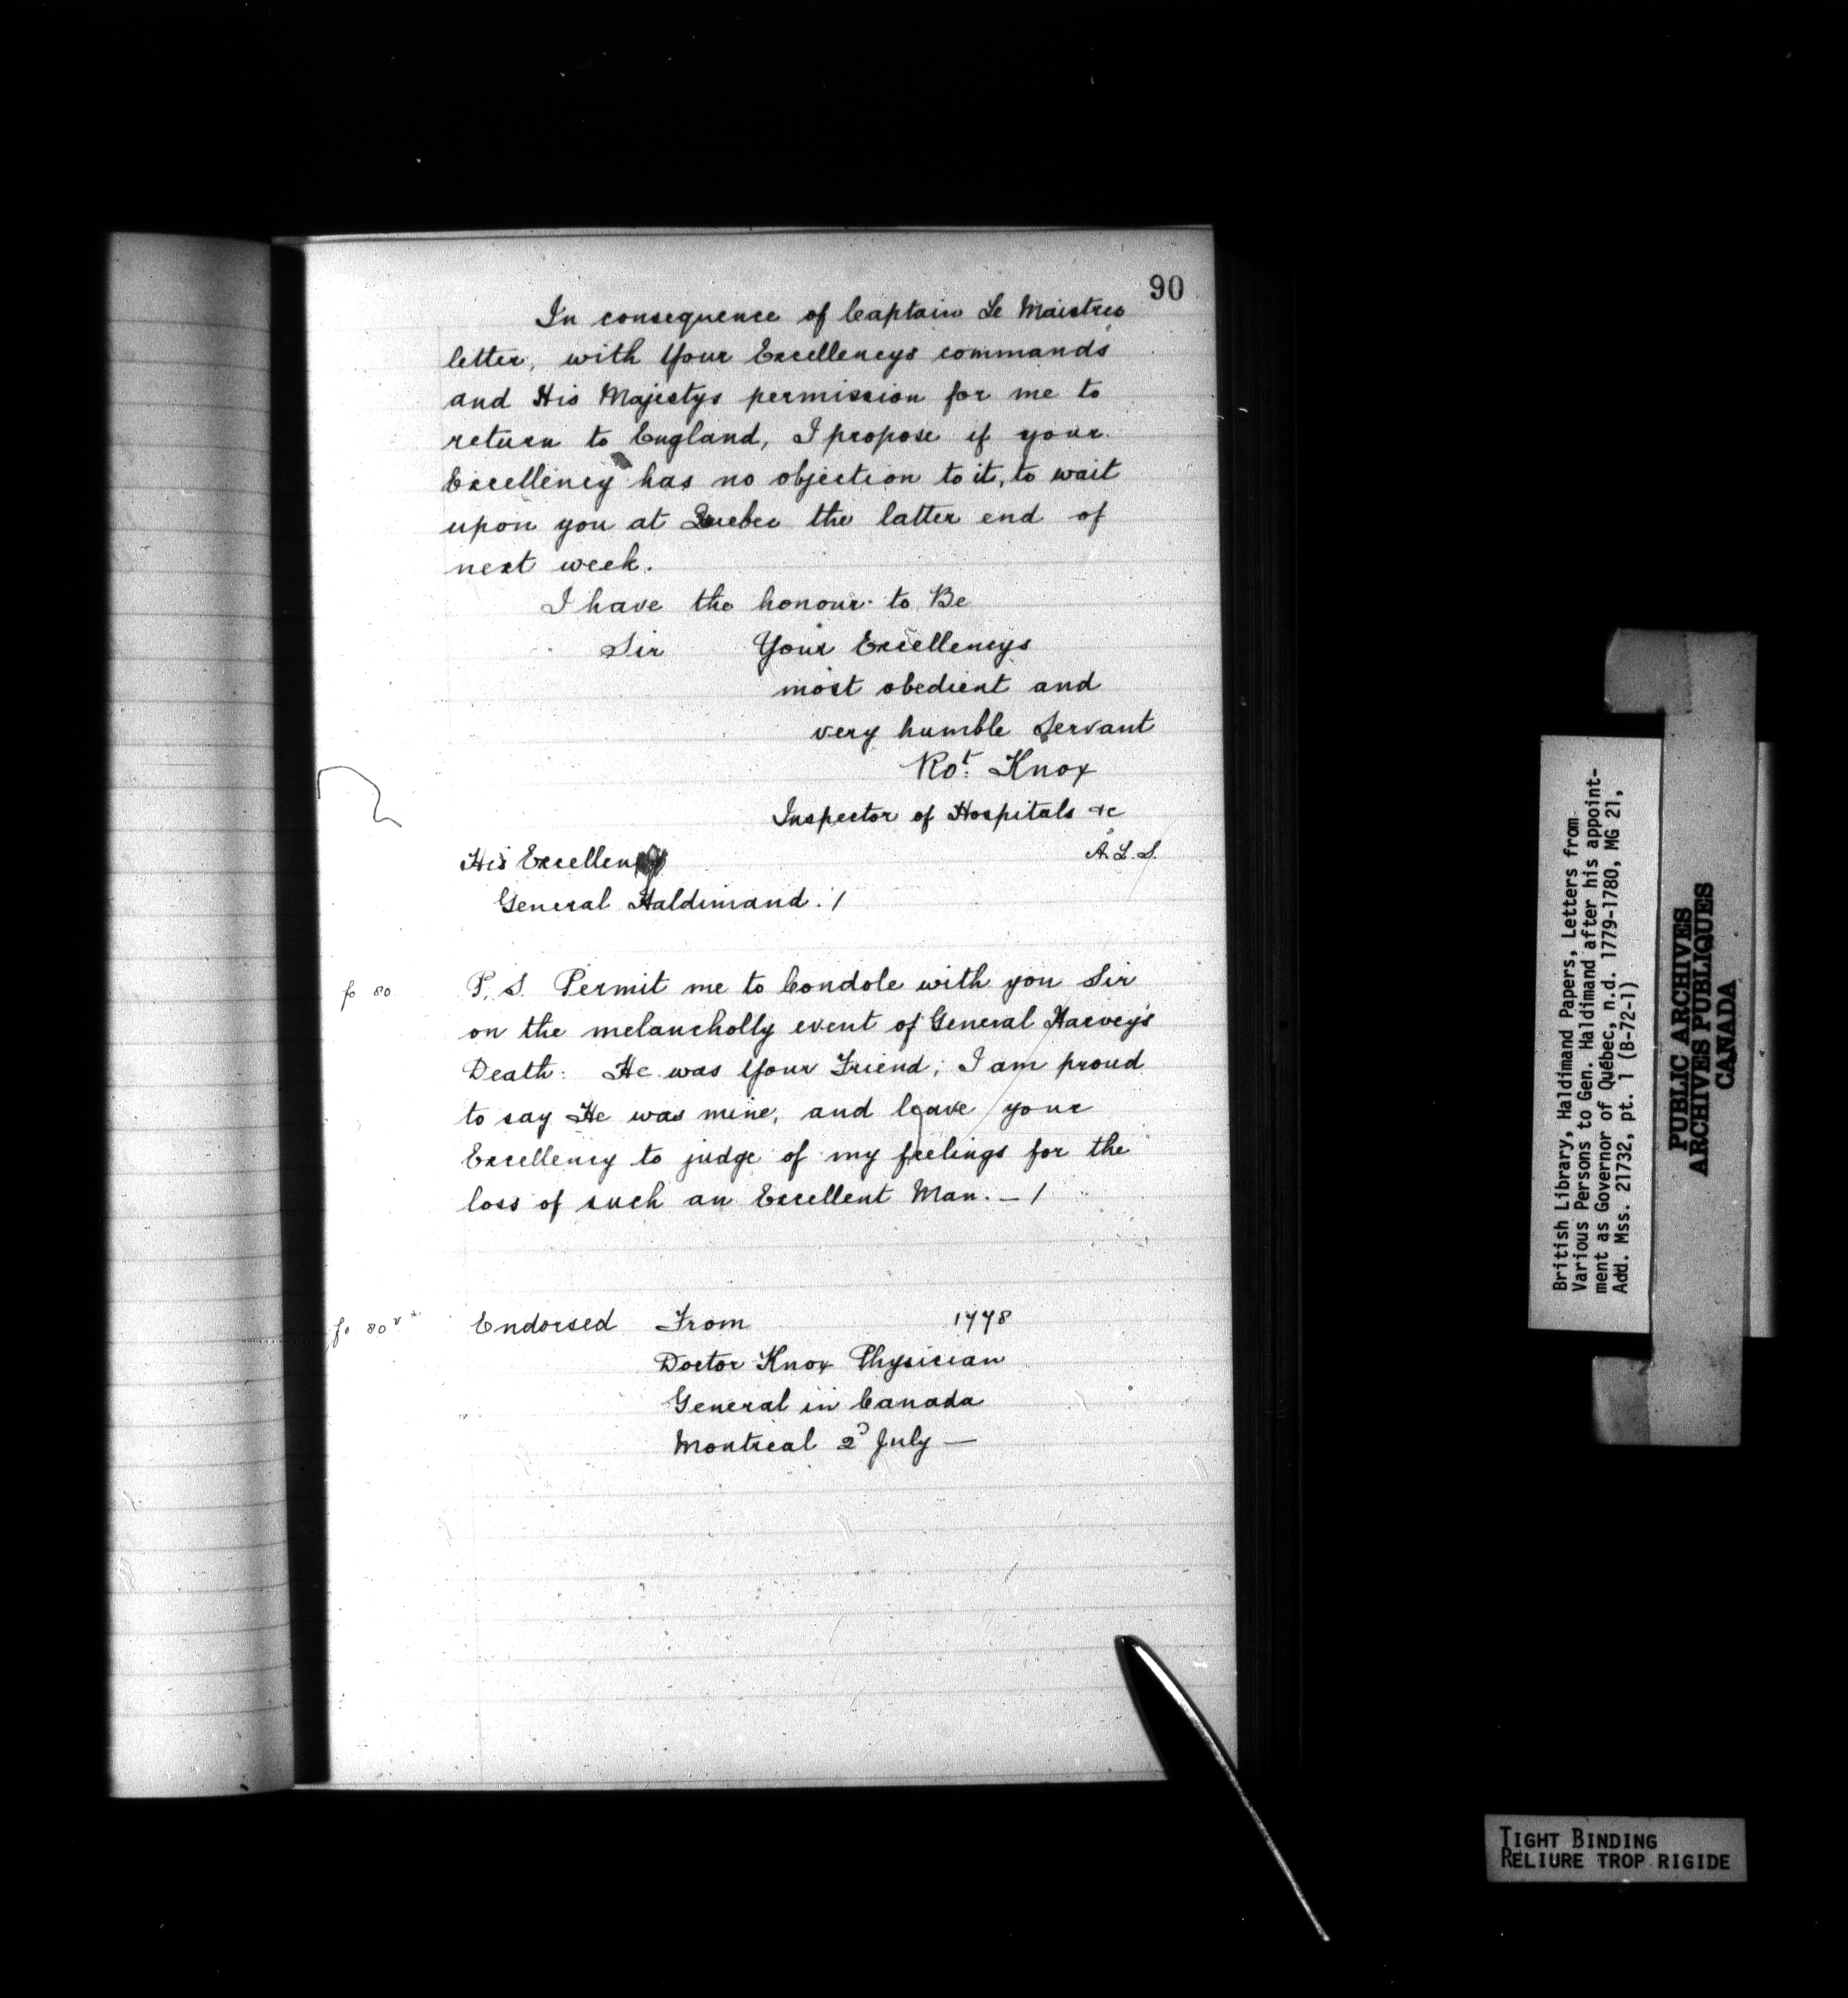 90
In consequence of Captain Le Maistres
letter, with Your Excellencys commands
and His Majestys permission for me to
return to England, I propose if your
Excellency has no objection to it, to wait
upon you at Quebec the latter end of
next week.
I have the honour to Be
Sir Your Excellencys
most obedient and
very humble Servant
Rot. Knox
Inspector of Hospitals &c
A. L. S.
His Excellency
General Haldimand. /
fo 80
P. S. Permit me to Condole with you Sir
on the melancholly event of General Harvey's
Death: He was Your Friend; I am proud
to say He was mine, and leave your
Excellency to judge of my feelings for the
loss of such an Excellent Man. — /
fo 80 vo
Endorsed From 1778
Doctor Knox Physician
General in Canada
Montreal 2d July —
British Library, Haldimand Papers, Letters from
Various Persons to Gen. Haldimand after his appoint-
ment as Governor of Québec, n.d. 1779-1780, MG 21,
Add. Mss. 21732, pt. 1 (B-72-1)
PUBLIC ARCHIVES
ARCHIVES PUBLIQUES
CANADA
TIGHT BINDING
RELIURE TROP RIGIDE